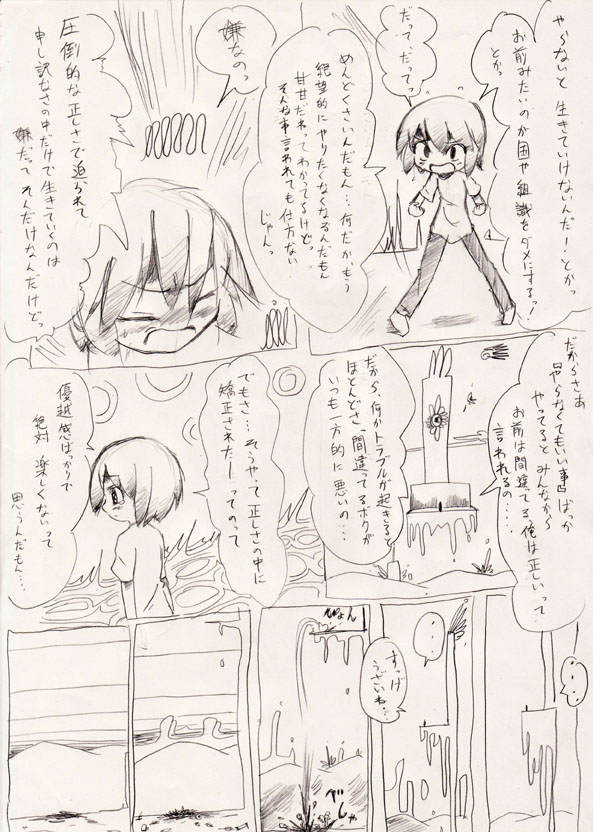 やらないと生きていけないんだ!とかっ
お前みたいのが国や組織をダメにするっ!
とかっ
だって、だってっ
めんどくさいんだもん…何だかもう
絶望的にやりたくなくなるんだもん
甘甘だねってわかってるけどっ
そんな事言われても仕方ない
じゃんっ
嫌なのっ
圧倒的な正しさで追われて
申し訳なさの中だけで生きていくのは
嫌だって そんだけなんだけどっ
だからさあ
やらなくてもいい事ばっか
やってるとみんなから
お前は間違ってる俺は正しいって
言われるの……
だから、何かトラブルが起きると
ほとんどさ、間違ってるボクが
いつも一方的に悪いの…
でもさ…そうやって正しさの中に
矯正されたー ってのって
優越感ばっかりで
絶対 楽しくないって
思うんだもん…
…
…
すっげ
うざいわ…
ぴょん
べしゃ